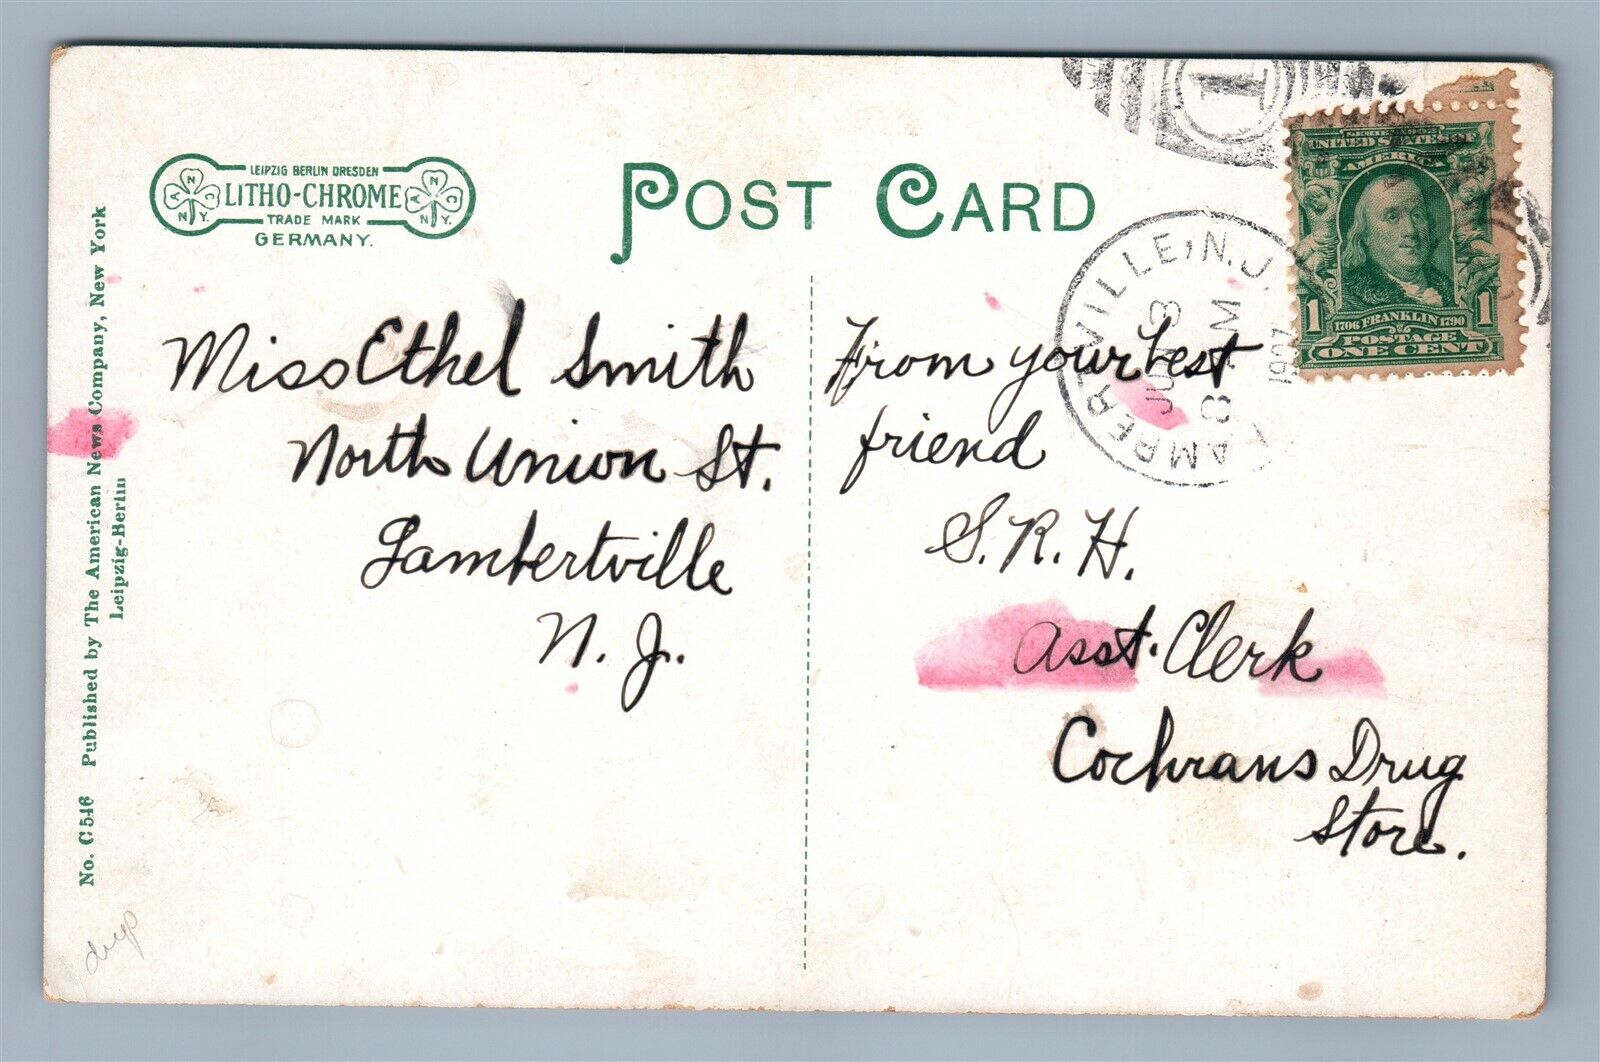 LEIPZIG BERLIN DRESDEN
LITHO-CHROME
TRADE MARK
GERMANY.
A N C
N.Y.
A N C
N.Y.
POST CARD
1
LAMBERTVILLE, N.J.
JUN 3
8 M
1907
UNITED STATES OF
AMERICA
1 1
1706 FRANKLIN 1790
POSTAGE
ONE CENT
Miss Ethel Smith
North Union St.
Lambertville
N. J.
From your best
friend
S. R. H.
Asst. Clerk
Cochrans Drug
Store.
No. C 546 Published by The American News Company, New York
Leipzig-Berlin
dup